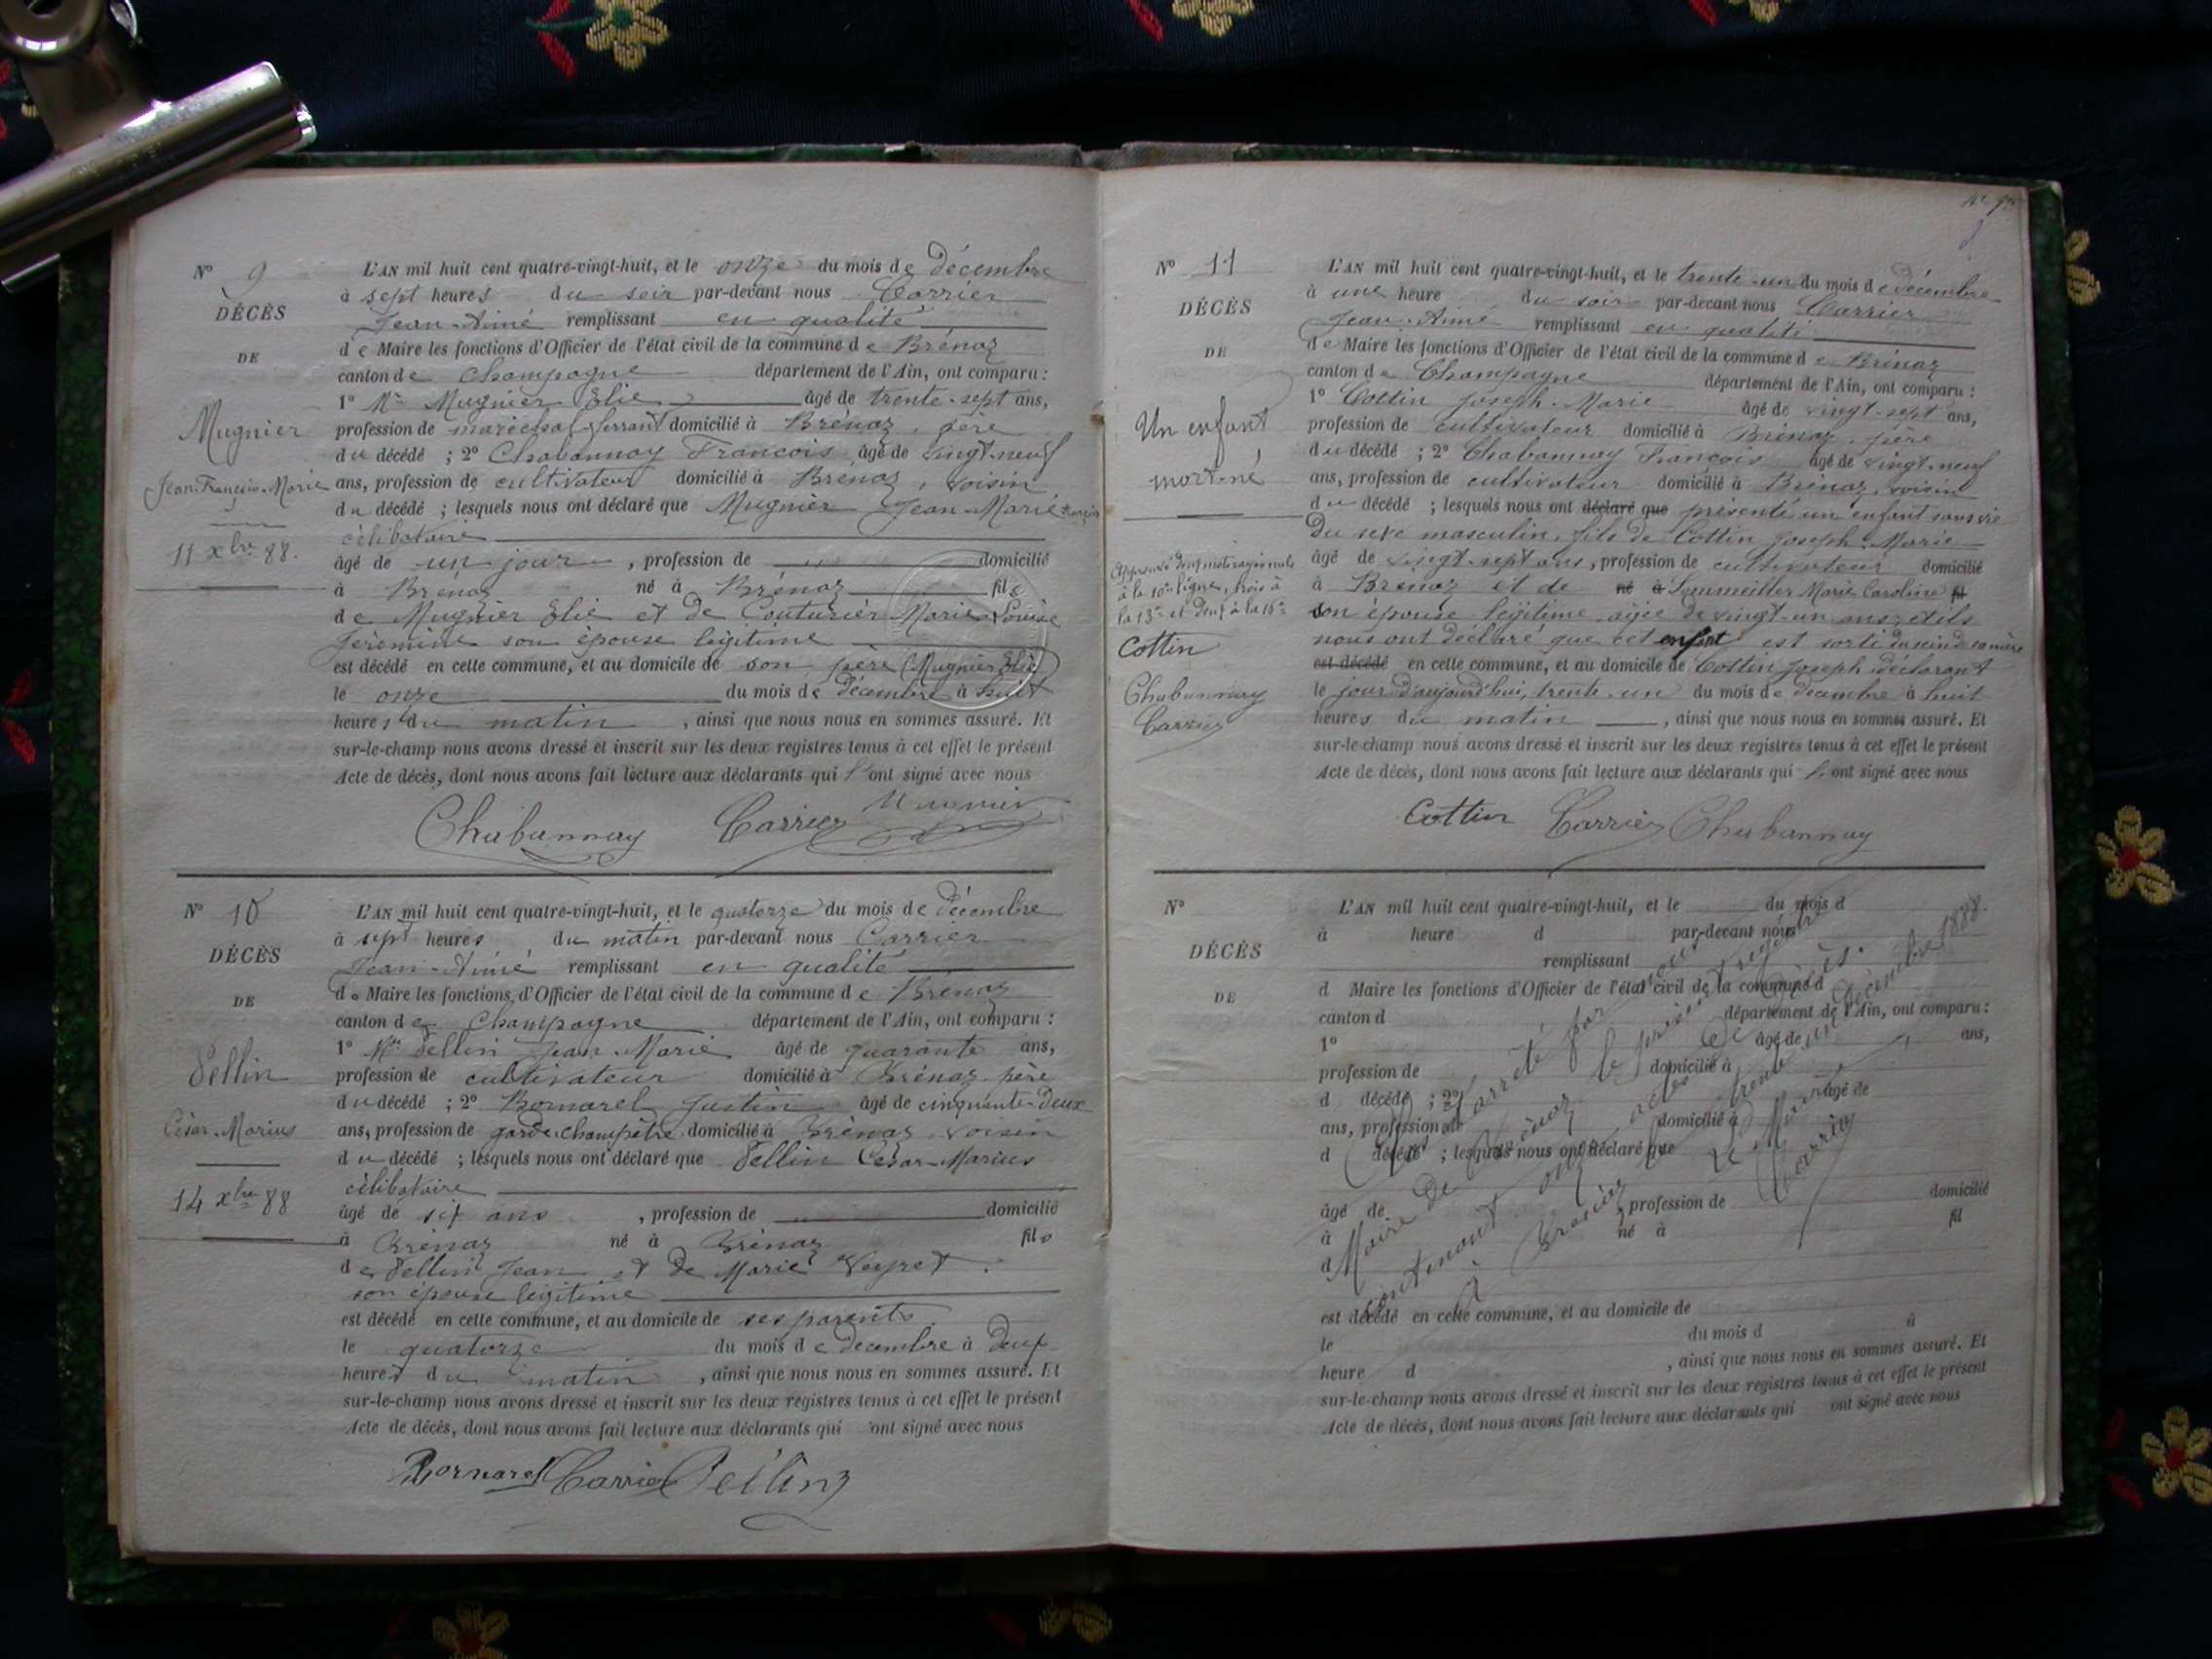 N° 9
DÉCÈS
DE
Mugnier
Jean-François-Marie
11 xbre 88.
L'AN mil huit cent quatre-vingt-huit, et le onze du mois de décembre
à sept heures du soir par-devant nous Carrier
Jean-Aimé remplissant en qualité
de Maire les fonctions d'Officier de l'état civil de la commune de Brénaz
canton de Champagne département de l'Ain, ont comparu :
1° Mr Mugnier Elie âgé de trente-sept ans,
profession de maréchal-ferrant domicilié à Brénaz, père
du décédé ; 2° Chabannay François âgé de vingt-neuf
ans, profession de cultivateur domicilié à Brénaz, voisin
du décédé ; lesquels nous ont déclaré que Mugnier Jean-Marie François
célibataire
âgé de un jour, profession de domicilié
à Brénaz né à Brénaz fils
de Mugnier Elie et de Couturier Marie-Louise
Jéremine son épouse légitime
est décédé en cette commune, et au domicile de son père (Mugnier Elie)
le onze du mois de décembre à huit
heures du matin, ainsi que nous nous en sommes assuré. Et
sur-le-champ nous avons dressé et inscrit sur les deux registres tenus à cet effet le présent
Acte de décès, dont nous avons fait lecture aux déclarants qui l'ont signé avec nous
Chabannay Carrier Mugnier
N° 10
DÉCÈS
DE
Pellin
César-Marius
14 xbre 88
L'AN mil huit cent quatre-vingt-huit, et le quatorze du mois de décembre
à sept heures du matin par-devant nous Carrier
Jean-Aimé remplissant en qualité
de Maire les fonctions d'Officier de l'état civil de la commune de Brénaz
canton de Champagne département de l'Ain, ont comparu :
1° Mr Pellin Jean-Marie âgé de quarante ans,
profession de cultivateur domicilié à Brénaz, père
du décédé ; 2° Bornarel Justin âgé de cinquante-deux
ans, profession de garde-champêtre domicilié à Brénaz, voisin
du décédé ; lesquels nous ont déclaré que Pellin César-Marius
célibataire
âgé de six ans, profession de domicilié
à Brénaz né à Brénaz fils
de Pellin Jean et de Marie Veyret
son épouse légitime
est décédé en cette commune, et au domicile de ses parents
le quatorze du mois de décembre à deux
heures du matin, ainsi que nous nous en sommes assuré. Et
sur-le-champ nous avons dressé et inscrit sur les deux registres tenus à cet effet le présent
Acte de décès, dont nous avons fait lecture aux déclarants qui ont signé avec nous
Bornarel Carrier Pellin
N° 11
DÉCÈS
DE
Un enfant
mort-né
Approuvé deux mots rayés nuls
à la 10me ligne, trois à
la 13me et deux à la 16me
Cottin
Chabannay
Carrier
L'AN mil huit cent quatre-vingt-huit, et le trente-un du mois de décembre
à une heure du soir par-devant nous Carrier
Jean-Aimé remplissant en qualité
de Maire les fonctions d'Officier de l'état civil de la commune de Brénaz
canton de Champagne département de l'Ain, ont comparu :
1° Cottin Joseph-Marie âgé de vingt-sept ans,
profession de cultivateur domicilié à Brénaz, père
du décédé ; 2° Chabannay François âgé de vingt-neuf
ans, profession de cultivateur domicilié à Brénaz, voisin
du décédé ; lesquels nous ont déclaré que présenté un enfant sans vie
du sexe masculin, fils de Cottin Joseph-Marie
âgé de vingt-sept ans, profession de cultivateur domicilié
à Brénaz et de né à Sommeiller Marie Caroline fil
son épouse légitime, âgée de vingt-un ans, et ils
nous ont déclaré que cet enfant est sorti du sein de sa mère
est décédé en cette commune, et au domicile de Cottin Joseph déclarant
le jour d'aujourd'hui, trente-un du mois de décembre à huit
heures du matin, ainsi que nous nous en sommes assuré. Et
sur-le-champ nous avons dressé et inscrit sur les deux registres tenus à cet effet le présent
Acte de décès, dont nous avons fait lecture aux déclarants qui l'ont signé avec nous
Cottin Carrier Chabannay
N°
DÉCÈS
DE
L'AN mil huit cent quatre-vingt-huit, et le du mois d
à heure d par-devant nous
remplissant
d Maire les fonctions d'Officier de l'état civil de la commune d
canton d département de l'Ain, ont comparu :
1° âgé de ans,
profession de domicilié à
d décédé ; 2° âgé de
ans, profession de domicilié à
d décédé ; lesquels nous ont déclaré que
âgé de , profession de domicilié
à né à fil
d
est décédé en cette commune, et au domicile de
le du mois d à
heure d , ainsi que nous nous en sommes assuré. Et
sur-le-champ nous avons dressé et inscrit sur les deux registres tenus à cet effet le présent
Acte de décès, dont nous avons fait lecture aux déclarants qui ont signé avec nous
Clos et arrêté par nous
Maire de Brénaz le présent registre
contenant onze actes de décès.
à Brénaz le trente-un décembre 1888.
Le Maire
Carrier